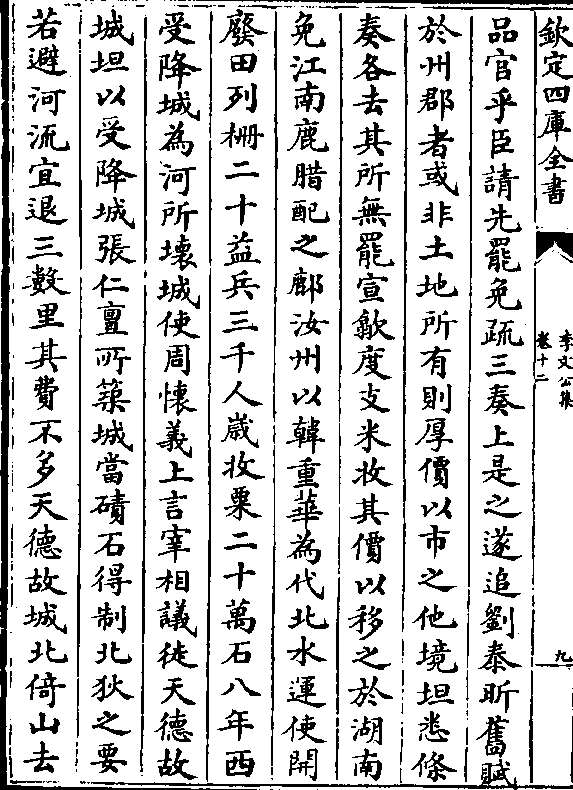 欽定四庫全書
李文公集
卷十二
九
品官乎臣請先罷免疏三奏上是之遂追劉泰昕舊賦
於州郡者或非土地所有則厚價以市之他境坦悉條
奏各去其所無罷宣歙度支米收其價以移之於湖南
免江南鹿腊配之鄜汝州以韓重華為代北水運使開
廢田列柵二十益兵三千人歲收粟二十萬石八年西
受降城為河所壞城使周懷義上言宰相議徙天德故
城坦以受降城張仁亶所築城當磧石得制北狄之要
若避河流宜退三數里其費不多天德故城北倚山去